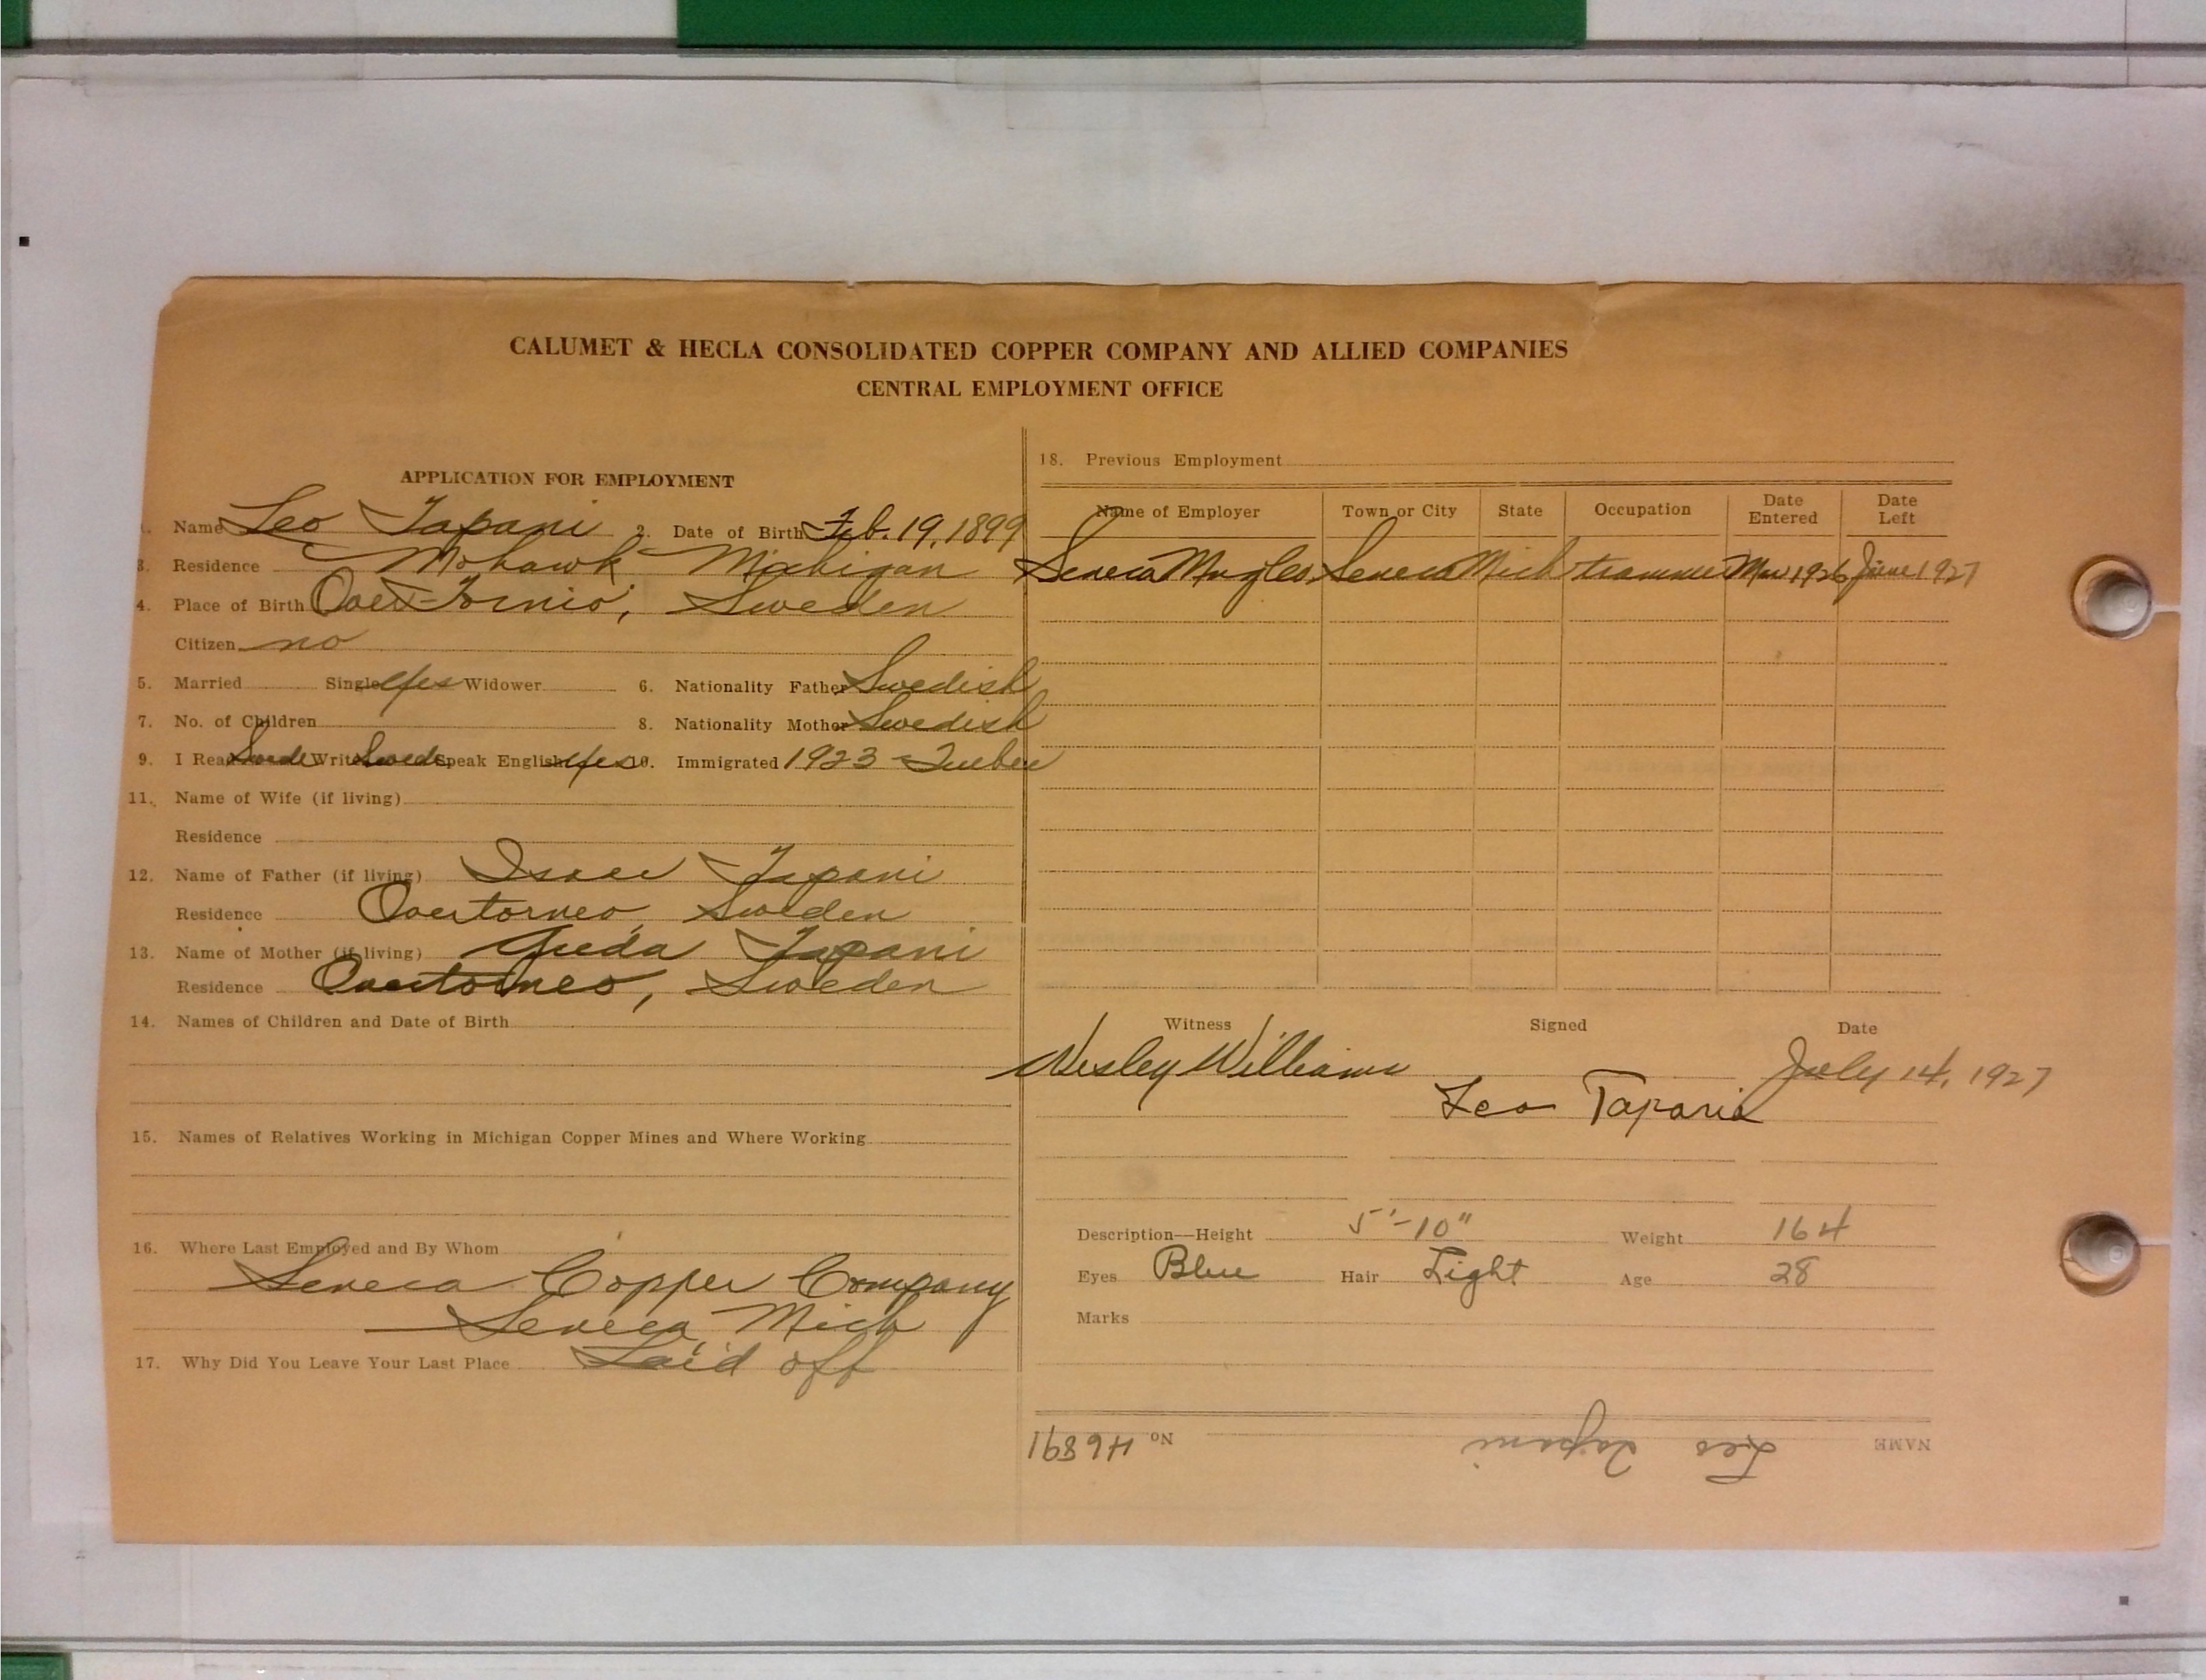 CALUMET & HECLA CONSOLIDATED COPPER COMPANY AND ALLIED COMPANIES
CENTRAL EMPLOYMENT OFFICE
APPLICATION FOR EMPLOYMENT
1. Name Leo Tapani 2. Date of Birth Feb. 19, 1899
3. Residence Mohawk Michigan
4. Place of Birth Över-Tornio, Sweden
Citizen no
5. Married Single Yes Widower 6. Nationality Father Swedish
7. No. of Children 8. Nationality Mother Swedish
9. I Read Swede Write Swede Speak English Yes 10. Immigrated 1923 Quebec
11. Name of Wife (if living)
Residence
12. Name of Father (if living) Isaac Tapani
Residence Overtorneo, Sweden
13. Name of Mother (if living) Tapani
Residence Overtorneo, Sweden
14. Names of Children and Date of Birth
15. Names of Relatives Working in Michigan Copper Mines and Where Working
16. Where Last Employed and By Whom
Seneca Copper Company
Seneca, Mich
17. Why Did You Leave Your Last Place Laid off
18. Previous Employment
Name of Employer Town or City State Occupation Date Entered Date Left
Seneca Seneca Mich trammer 1926 June 1927
Witness Signed Date
Wesley Williams July 14, 1927
Leo Tapania
Description—Height 5'-10" Weight 164
Eyes Blue Hair Light Age 28
Marks
NAME Leo Tapani No H6891